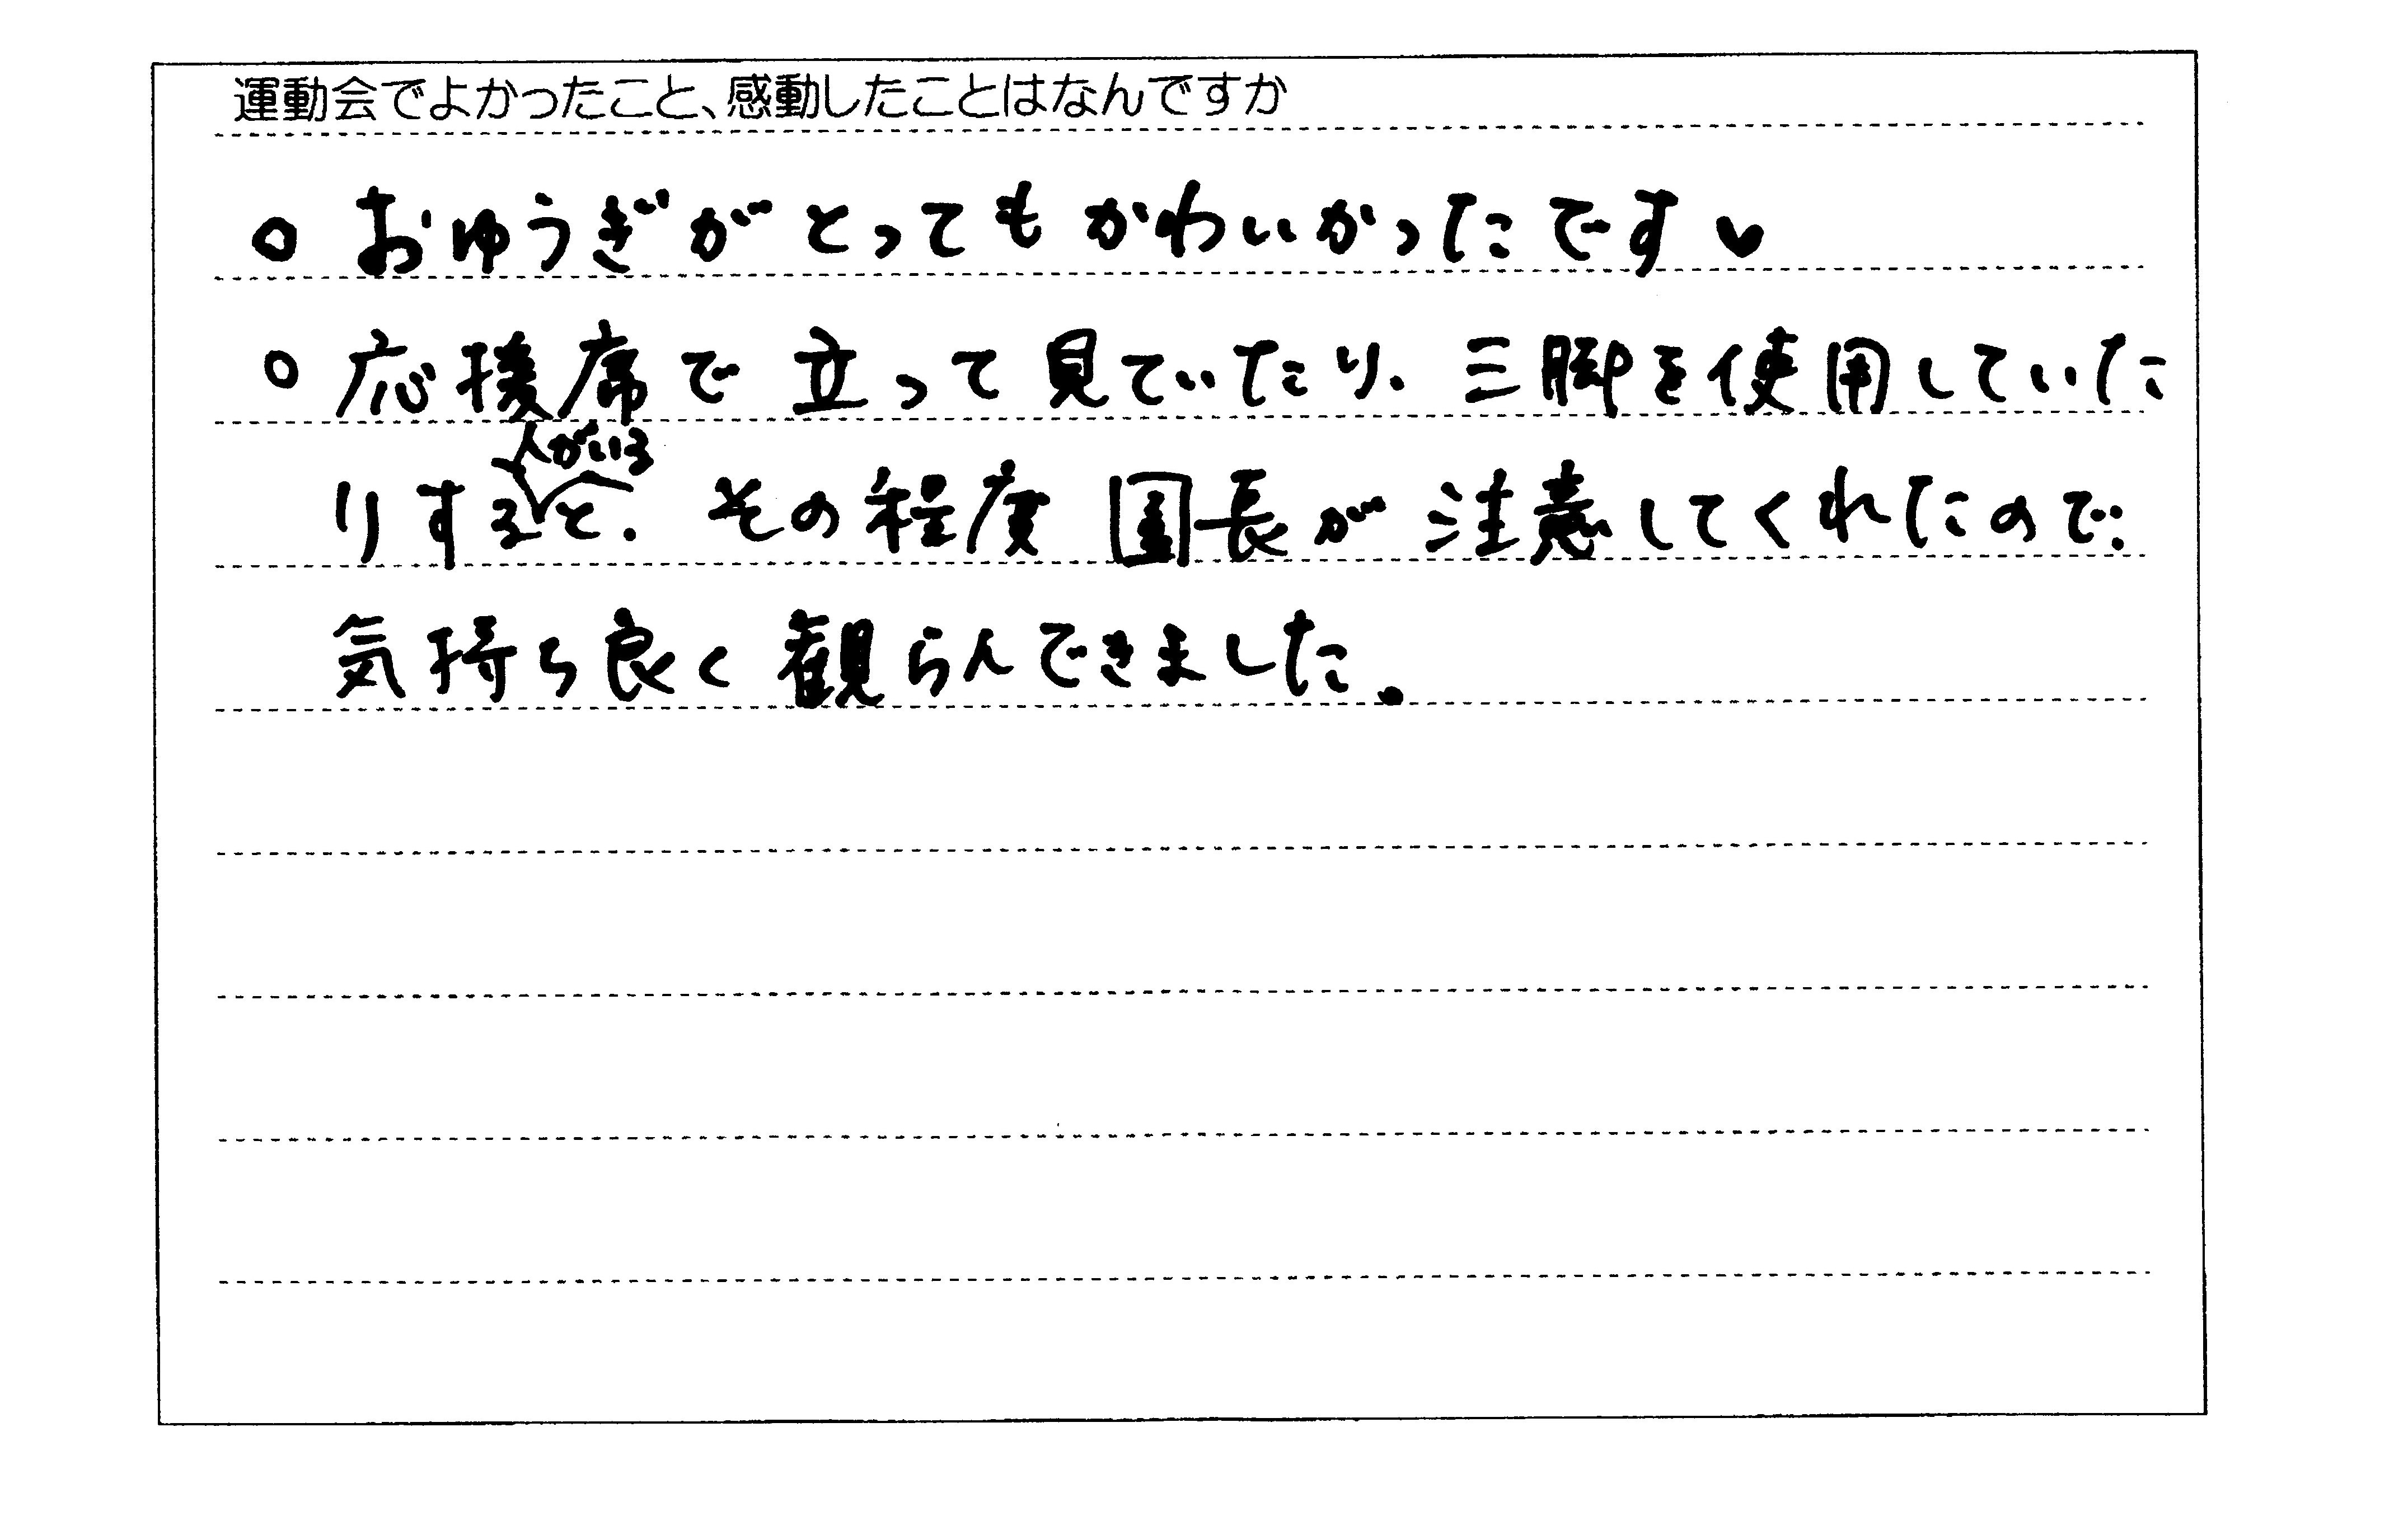 運動会でよかったこと、感動したことはなんですか
○ おゆうぎがとってもかわいかったです♥
○ 応援席で立って見ていたり、三脚を使用していた
人がいる
りすると、その程度園長が注意してくれたので、
気持ち良く観らんできました。